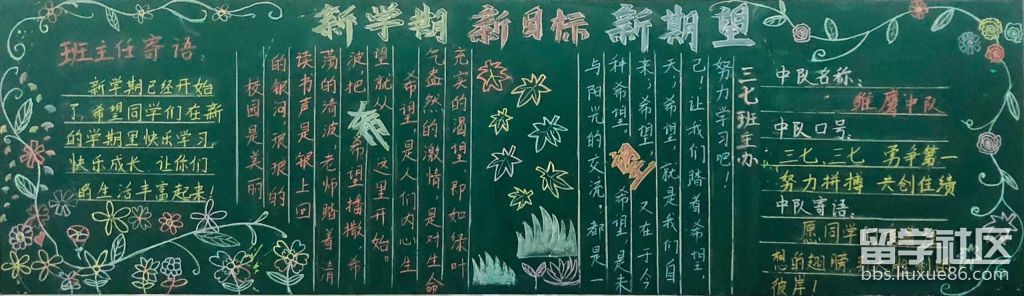 新学期 新目标 新期望
班主任寄语：
新学期已经开始
了，希望同学们在新
的学期里快乐学习，
快乐成长 让你们
的生活丰富起来！
校园是美丽
的，琅琅的
读书声是披上回
荡的清波，老师踏着清
波，把希望播撒，希
望就从这里开始。
希望，是人们内心生
气盎然的激情，是对生命
充实的渴望，即如绿叶
与阳光的交流；都是一
种希望。希望，是未
来，希望，又在于今
天，希望，就是我们自
己！让我们踏着希望，
努力学习吧！
希
望
三七班主办
中队名称：
雏鹰中队
中队口号：
三七、三七 勇争第一
努力拼搏 共创佳绩
中队寄语：
愿同学
想的翅膀
彼岸！
留学社区
bbs.liuxue86.com